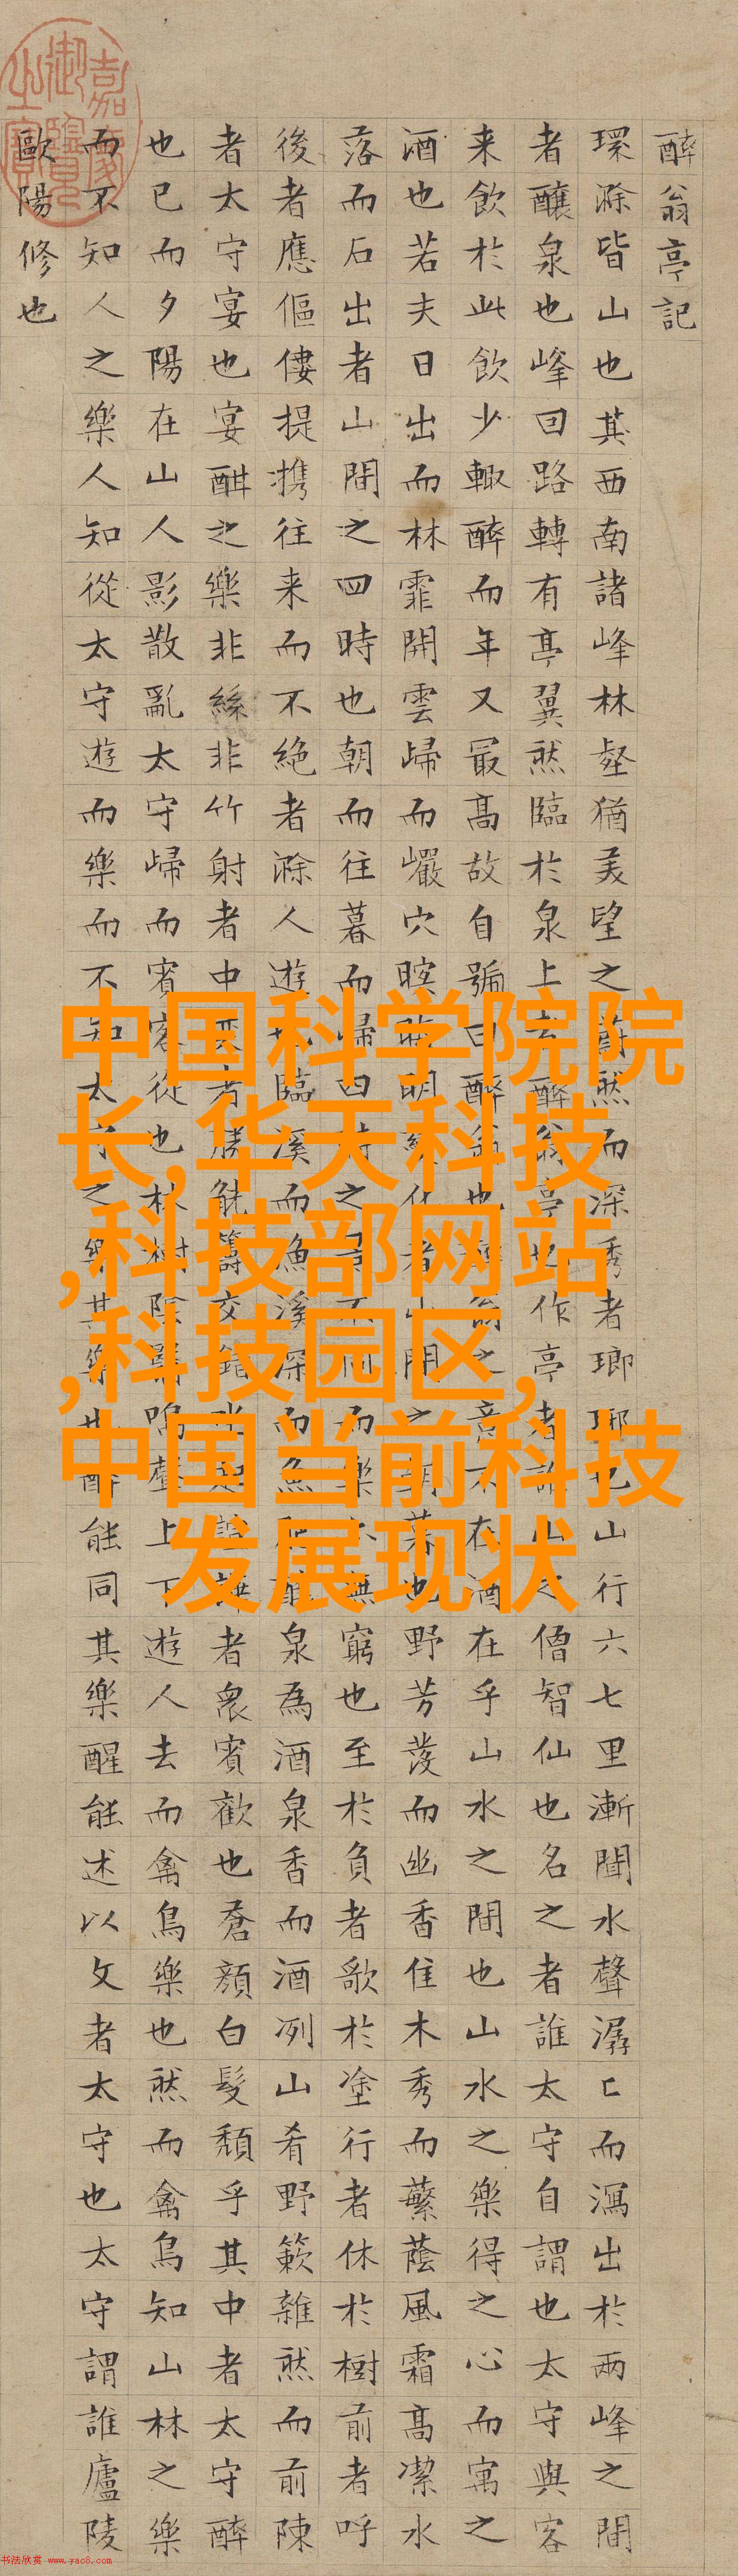 醉翁亭記
環滁皆山也其西南諸峰林壑猶美望之蔚然而深秀者瑯琊也山行六七里漸聞水聲潺〻而瀉出於兩峰之間
者釀泉也峰回路轉有亭翼然臨於泉上者醉翁亭也作亭者誰山之僧智仙也名之者誰太守自謂也太守與客
来飲於此飲少輒醉而年又最高故自號曰醉翁也醉翁之意不在酒在乎山水之間也山水之樂得之心而寓之
酒也若夫日出而林霏開雲歸而巖穴暝晦明變化者山間之朝暮也野芳發而幽香佳木秀而蘩蔭風霜高潔水
落而石出者山間之四時也朝而往暮而歸四時之景不同而樂亦無窮也至於負者歌於塗行者休於樹前者呼
後者應傴僂提攜往来而不絕者滁人遊也臨溪而漁溪深而魚肥釀泉為酒泉香而酒冽山肴野簌雜然而前陳
者太守宴也宴酣之樂非絲非竹射者中奕者勝觥籌交錯坐起諠譁者眾賓歡也蒼顏白髮頹乎其中者太守醉
也已而夕陽在山人影散亂太守歸而賓客從也林樹陰翳鳴聲上下遊人去而禽鳥樂也然而禽鳥知山林之樂
而不知人之樂人知從太守遊而樂而不知太守之樂其樂也醉能同其樂醒能述以文者太守也太守謂誰廬陵
歐陽修也
嘉慶御覽之寶
中国科学院院
长,华天科技
,科技部网站
,科技园区,
中国当前科技
发展现状
书法欣赏 www.yac8.com